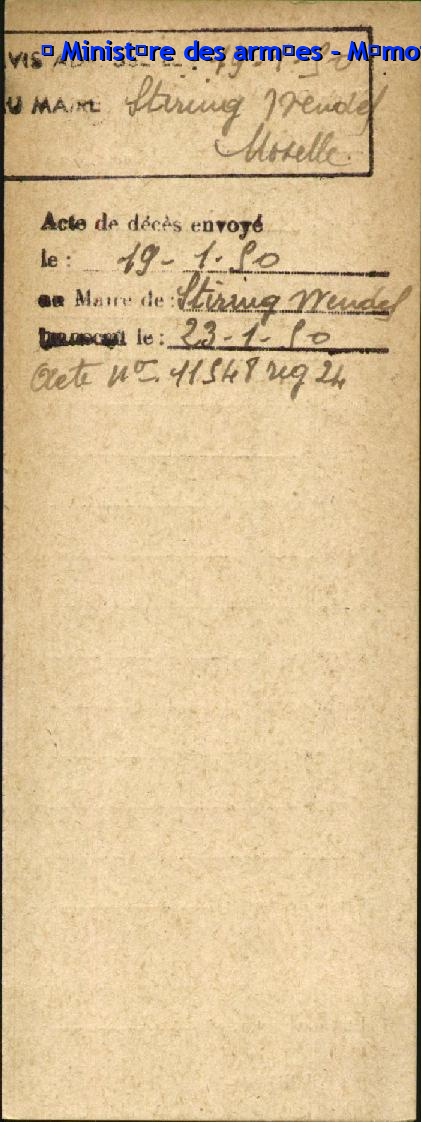 □ Minist□re des arm□es - M□mo
VIS AD
19-1-50
U MAIRE Stiring Wendel
Moselle.
Acte de décès envoyé
le : 19-1-50
au Maire de : Stiring Wendel
le : 23-1-50
Acte n° 11548 reg 24